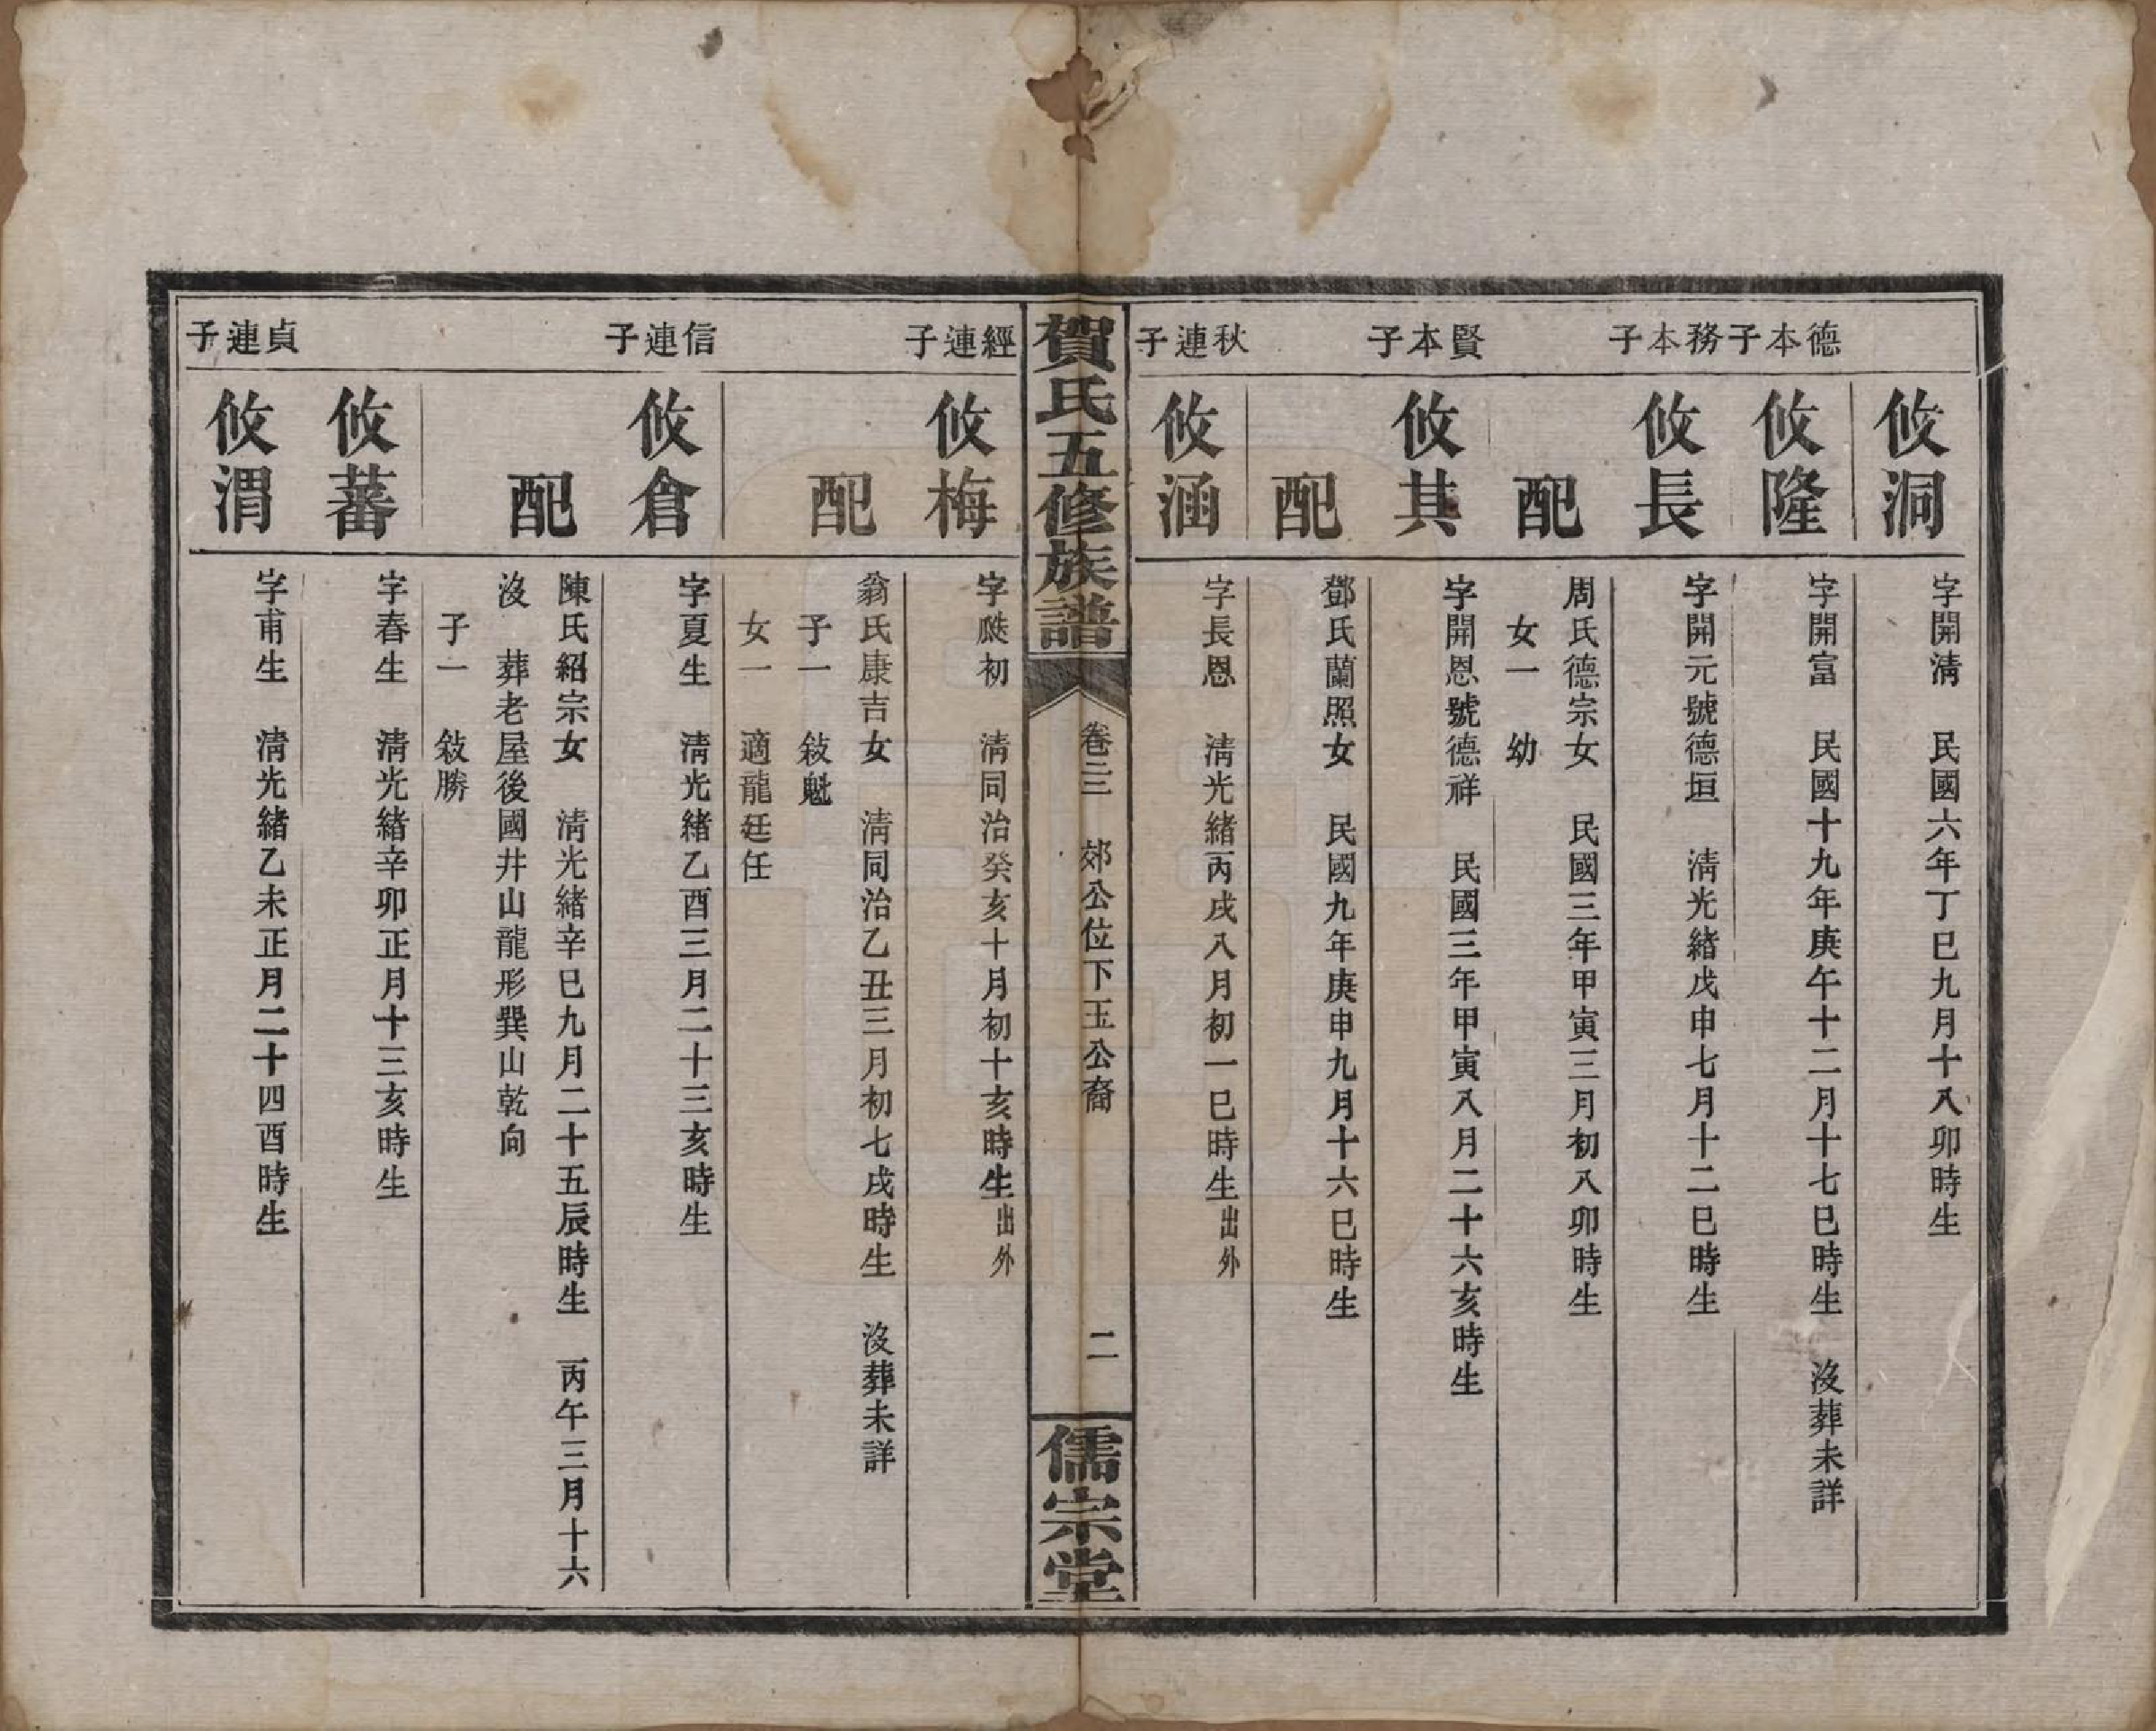 攸洞
字開淸　民國六年丁巳九月十八卯時生
德本子
攸隆
字開富　民國十九年庚午十二月十七巳時生　沒葬未詳
務本子
攸長
字開元號德垣　淸光緒戊申七月十二巳時生
配
周氏德宗女　民國三年甲寅三月初八卯時生
女一　幼
賢本子
攸其
字開恩號德祥　民國三年甲寅八月二十六亥時生
配
鄧氏蘭照女　民國九年庚申九月十六巳時生
秋連子
攸涵
字長恩　淸光緒丙戌八月初一巳時生出外
賀氏五修族譜
卷三　郊公位下玉公裔
二
儒宗堂
經連子
攸梅
字初　淸同治癸亥十月初十亥時生出外
配
翁氏康吉女　淸同治乙丑三月初七戌時生　沒葬未詳
子一　敍魁
女一　適龍廷任
信連子
攸倉
字夏生　淸光緒乙酉三月二十三亥時生
配
陳氏紹宗女　淸光緒辛巳九月二十五辰時生　丙午三月十六
沒　葬老屋後國井山龍形巽山乾向
子一　敍勝
攸蕃
字春生　淸光緒辛卯正月十三亥時生
貞連子
攸渭
字甫生　淸光緒乙未正月二十四酉時生